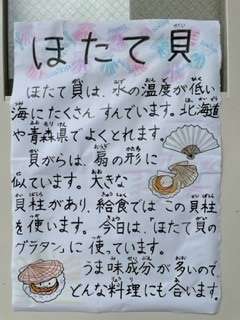 ほたて貝
ほたて貝は、水の温度が低い
海にたくさんすんでいます。北海道
や青森県でよくとれます。
貝がらは、扇の形に
似ています。大きな
貝柱があり、給食ではこの貝柱
を使います。今日は、「ほたて貝の
グラタン」に使っています。
うま味成分が多いので、
どんな料理にも合います。